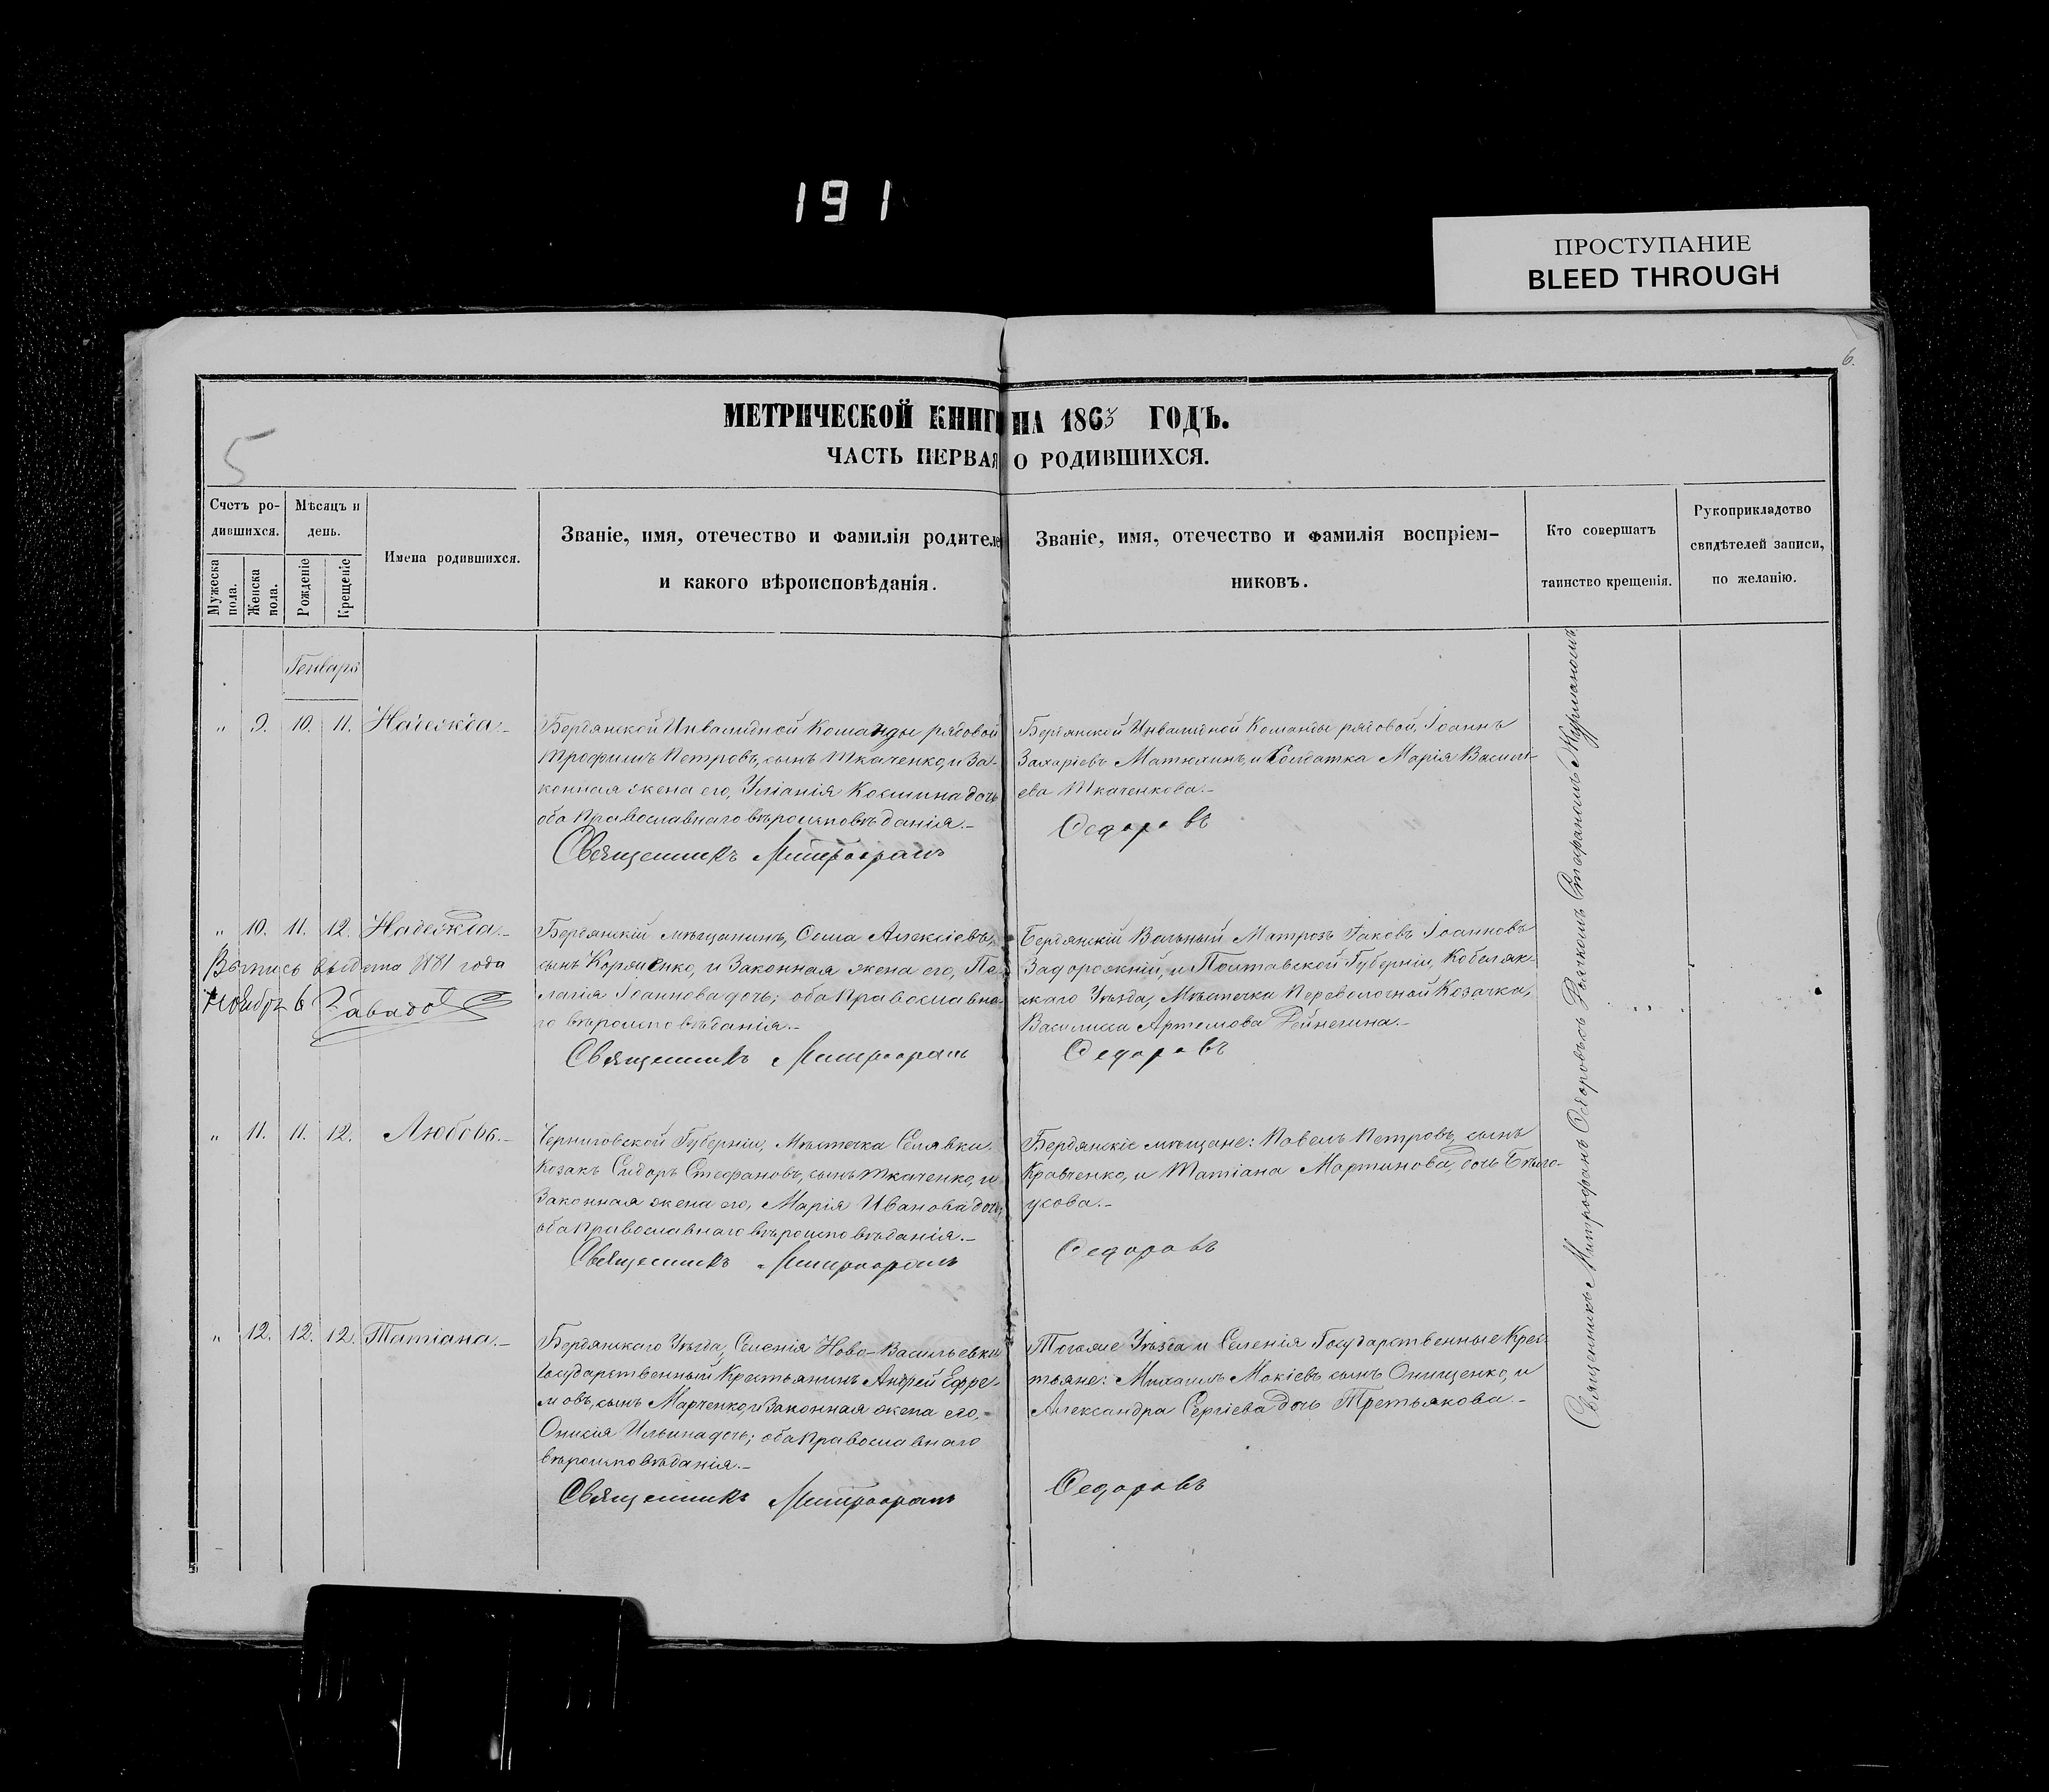 191
ПРОСТУПАНИЕ
BLEED THROUGH
6.
МЕТРИЧЕСКОЙ КНИГИ НА 1863 ГОДЪ.
5
ЧАСТЬ ПЕРВАЯ О РОДИВШИХСЯ.
Счетъ ро-
дившихся.
Мужеска пола.
Женска пола.
Мѣсяцъ и
день.
Рожденіе
Крещеніе
Имена родившихся.
Званіе, имя, отечество и фамилія родителе
и какого вѣроисповѣданія.
Званіе, имя, отечество и фамилія воспріем-
никовъ.
Кто совершатъ
таинство крещенія.
Рукоприкладство
свидѣтелей записи,
по желанію.
Генваря
„ 9. 10. 11. Надежда.-
Бердянской Инвалидной Команды рядовой
Трофимъ Петровъ, сынъ Ткаченко, и За-
конная жена его, Уліанія Космина дочь
оба Православнаго вѣроисповѣданія.-
Священникъ Митрофанъ
Бердянской Инвалидной Команды рядовой, Іоаннъ
Захаріевъ Матюхинъ, и Солдатка Марія Василі-
ева Ткаченкова.-
Федоровъ
„ 10. 11. 12. Надежда.-
Выпись выдана 1881 года
Ноября 6
Бердянскій мѣщанинъ, Сема Алексіевъ,
сынъ Корянко, и Законная жена его, Пе-
лагія Іоаннова дочь; оба Православна-
го вѣроисповѣданія.-
Священникъ Митрофанъ
Бердянскій Вольный Матрозъ Іаковъ Іоанновъ
Задорожній, и Полтавской Губерніи, Кобеляк-
скаго Уѣзда, Мѣстечка Переволочной Козачка,
Василисса Артемова Дейнегина.-
Федоровъ
„ 11. 11. 12. Любовь.-
Черниговской Губерніи, Мѣстечка
Козакъ Сидоръ Стефановъ, сынъ Ткаченко, и
Законная жена его, Марія Иванова дочь,
оба Православнаго вѣроисповѣданія.-
Священникъ Митрофанъ
Бердянскіе мѣщане: Павелъ Петровъ, сынъ
Кравченко, и Татіана Мартинова, дочь Бѣло-
усова.-
Федоровъ
„ 12. 12. 12. Татіана.-
Бердянскаго Уѣзда, Селенія Ново-Васильевки
Государственный Крестьянинъ Андрей Ефре-
мовъ, сынъ Марченко, и Законная жена его,-
Онисія Ильина дочь; оба Православнаго
вѣроисповѣданія.-
Священникъ Митрофанъ
Тогоже Уѣзда и Селенія Государственные Крес-
тьяне: Михаилъ Мокіевъ сынъ Онищенко, и
Александра Сергіева дочь Третьякова.-
Федоровъ
Священникъ Митрофанъ Федоровъ съ Дьячкомъ Стефаномъ